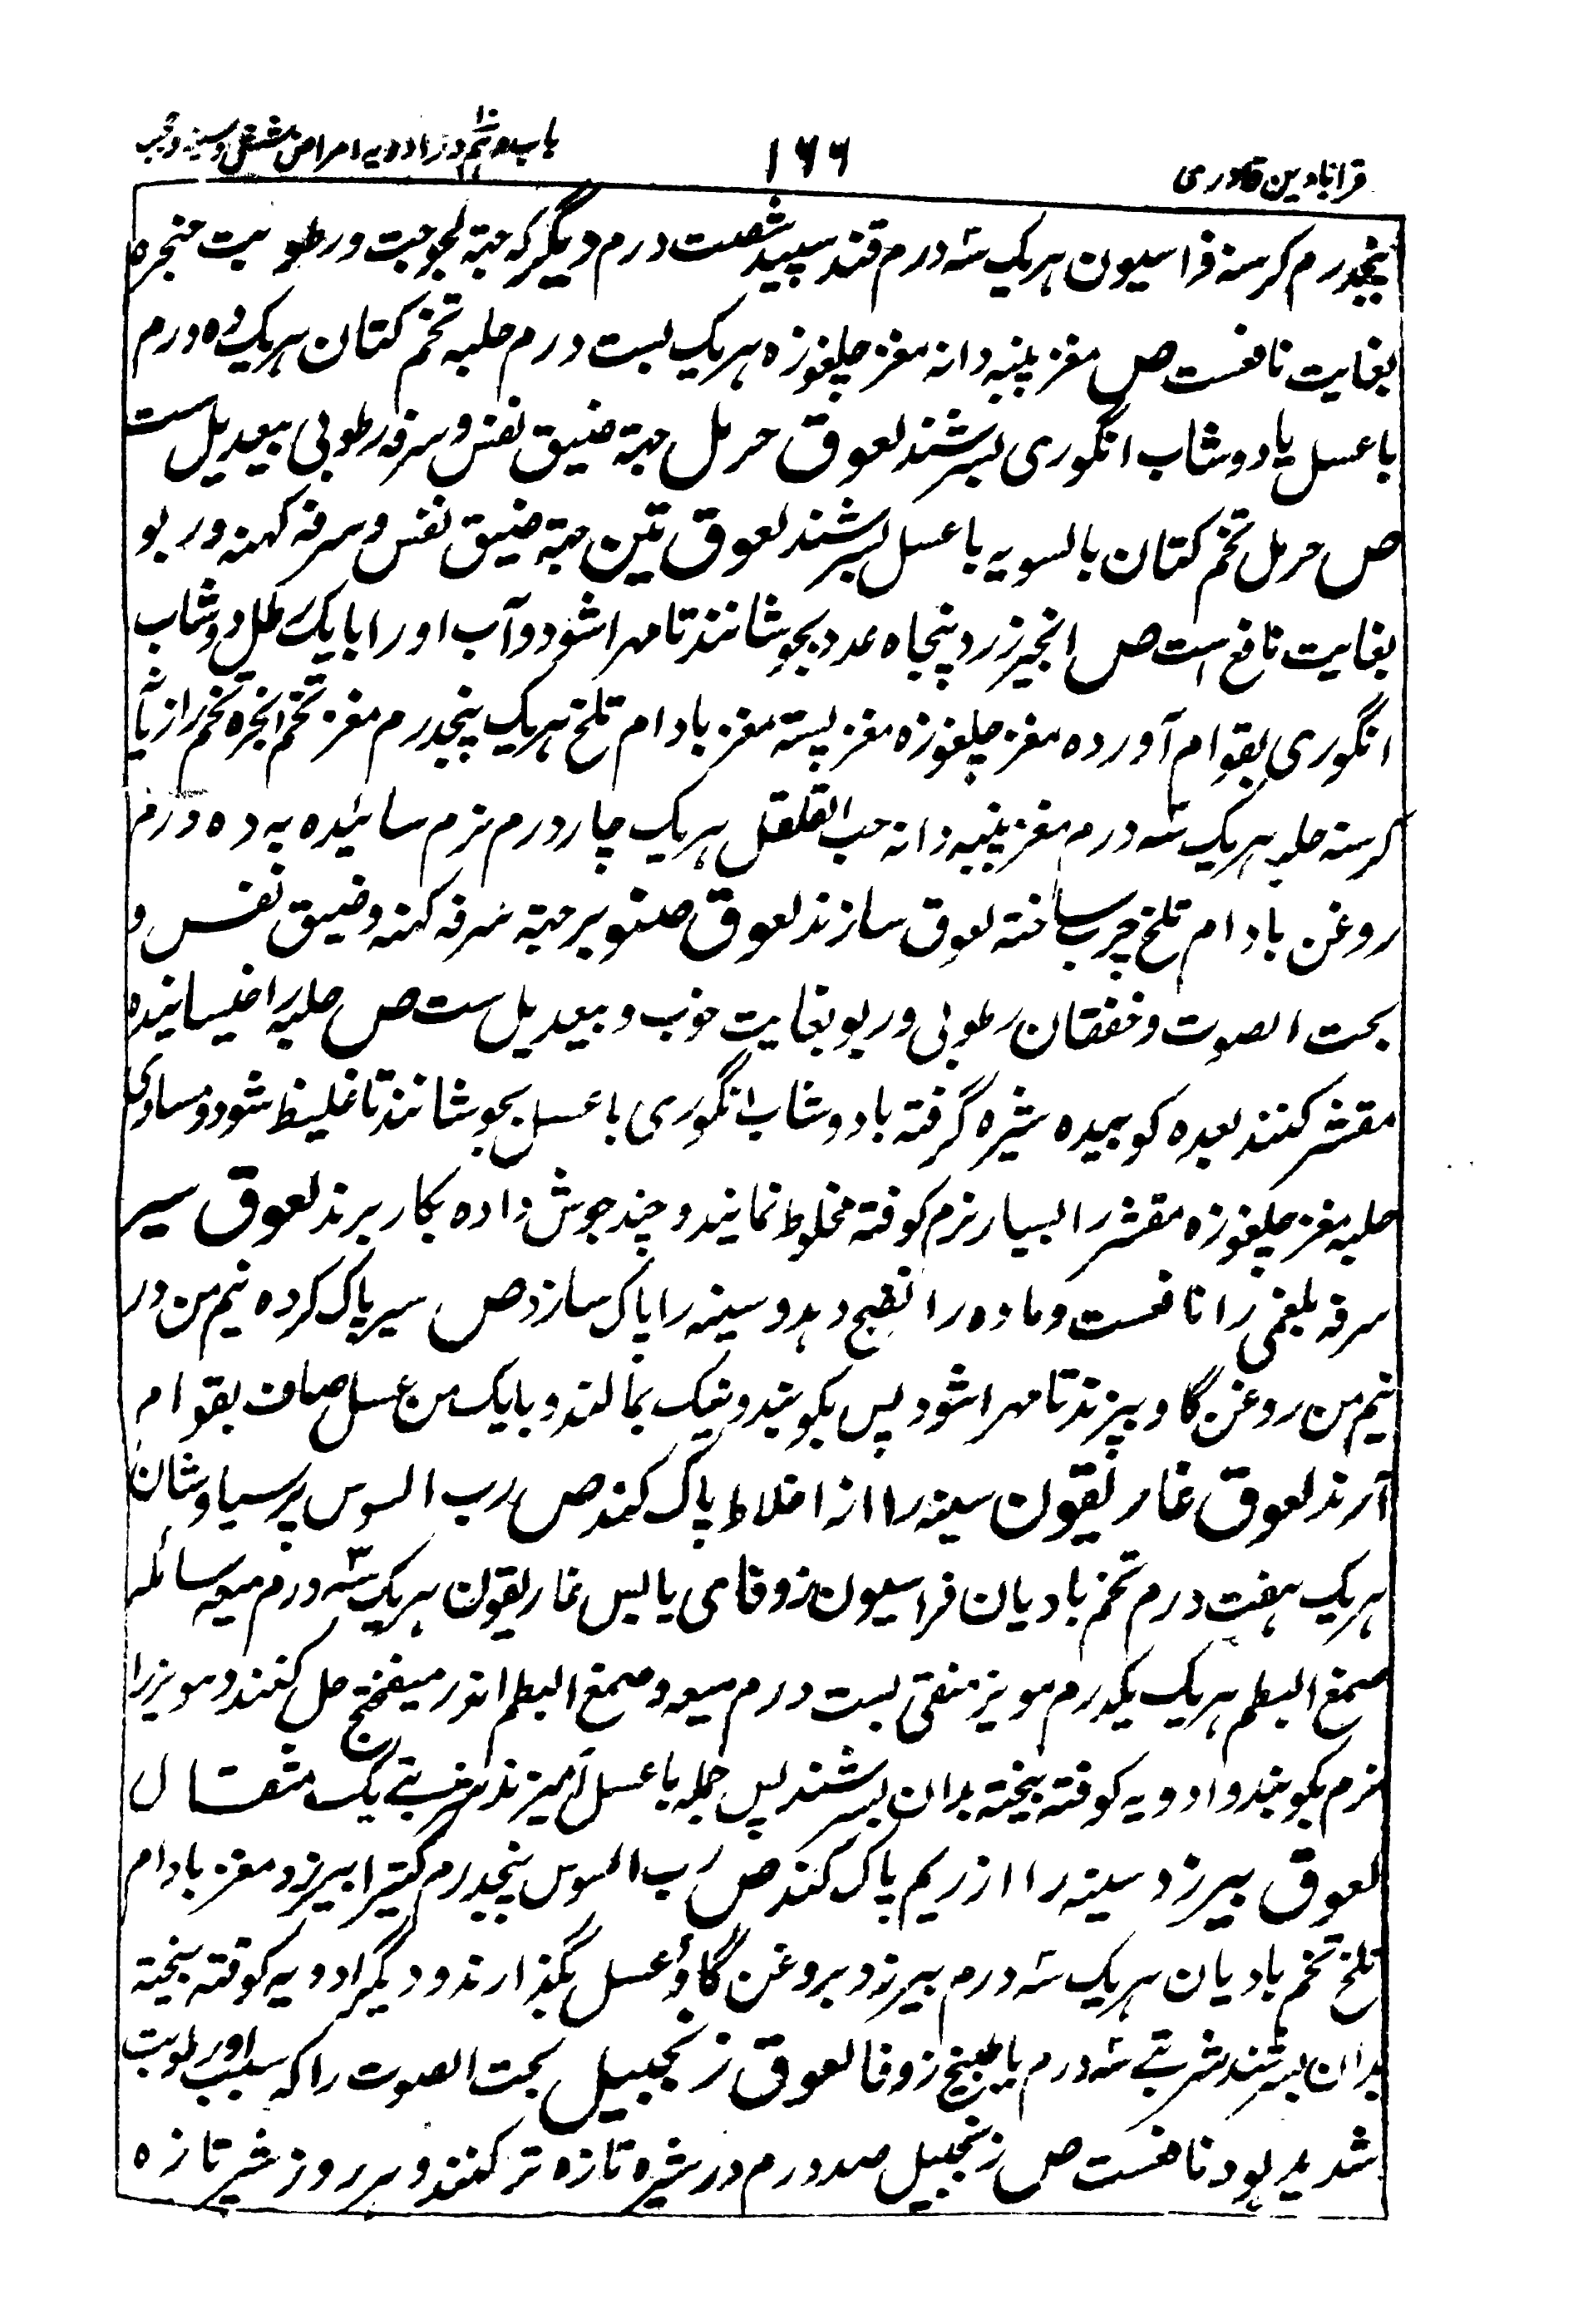 قرابادین قادری
۱۶۶
باب در ادویه امراض شش و سینه و حجب
پنجدرم کرسنه فراسیون هر یک سه درم قند سپید شصت درم دیگر که جهة لجوجت و رطوبیت حنجره
بغایت نافعست ص مغز پنبه دانه مغز چلغوزه هر یک بست درم حلبه تخم کتان هر یک ده درم
با عسل یا دوشاب انگوری بسرشند لعوق حرمل جهة ضیق نفس و سرفه رطوبی بیعدیل ست
ص حرمل تخم کتان بالسویه با عسل بسرشند لعوق تین جهة ضیق نفس و سرفه کهنه و ربو
بغایت نافع است ص انجیر زرد پنجاه عدد بجوشانند تا مهرا شود و آب او را با یک رطل دوشاب
انگوری بقوام آورده مغز چلغوزه مغز پسته مغز بادام تلخ هر یک پنجدرم مغز تخم انجره تخم رازیا
کرسنه حلبه هر یک سه درم مغز پنبه دانه حب القلقل هر یک چار درم نرم سائیده به ده درم
روغن بادام تلخ چرب ساخته لعوق سازند لعوق صنوبر جهة سرفه کهنه و ضیق نفس و
بحت الصوت و خفقان رطوبی و ربو بغایت خوب و بیعدیل ست ص حلبه را خیسانیده
مقشر کنند بعده کوبیده شیره گرفته با دوشاب انگوری با عسل بجوشانند تا غلیظ شود و مساوی
حلبه مغز چلغوزه مقشر را بسیار نرم کوفته مخلوط نمایند و چند جوش داده بکار برند لعوق سیر
سرفه بلغمی را نافعست و ماده را نضج دهد و سینه را پاک سازد ص سیر پاک کرده نیم من در
نیم من روغن گاو بپزند تا مهرا شود پس بکوبند و نیک بمالند و با یک من عسل صاف بقوام
آرند لعوق غاریقون سینه را از اخلاط پاک کند ص رب السوس پرسیاوشان
هر یک هفت درم تخم بادیان فراسیون زوفای یابس غاریقون هر یک سه درم میعه سائله
صمغ البطم هر یک یکدرم مویز منقی بست درم میعه و صمغ البطم اندر میفختج حل کنند و مویز را
نرم بکوبند و ادویه کوفته بیخته بدان بسرشند پس جمله با عسل آمیزند شربتی یک مثقال
لعوق بیرزد سینه را از ریم پاک کند ص رب السوس پنجدرم کتیرا بیرزد مغز بادام
تلخ تخم بادیان هر یک سه درم بیرزد بروغن گاو و عسل بگذارند و دیگر ادویه کوفته بیخته
بدان بسرشند شربتی سه درم با طبیخ زوفا لعوق زنجبیل بحت الصوت را که بسبب او رطوبت
شدید بود نافعست ص زنجبیل صد درم در شیره تازه تر کنند و هر روز شیر تازه